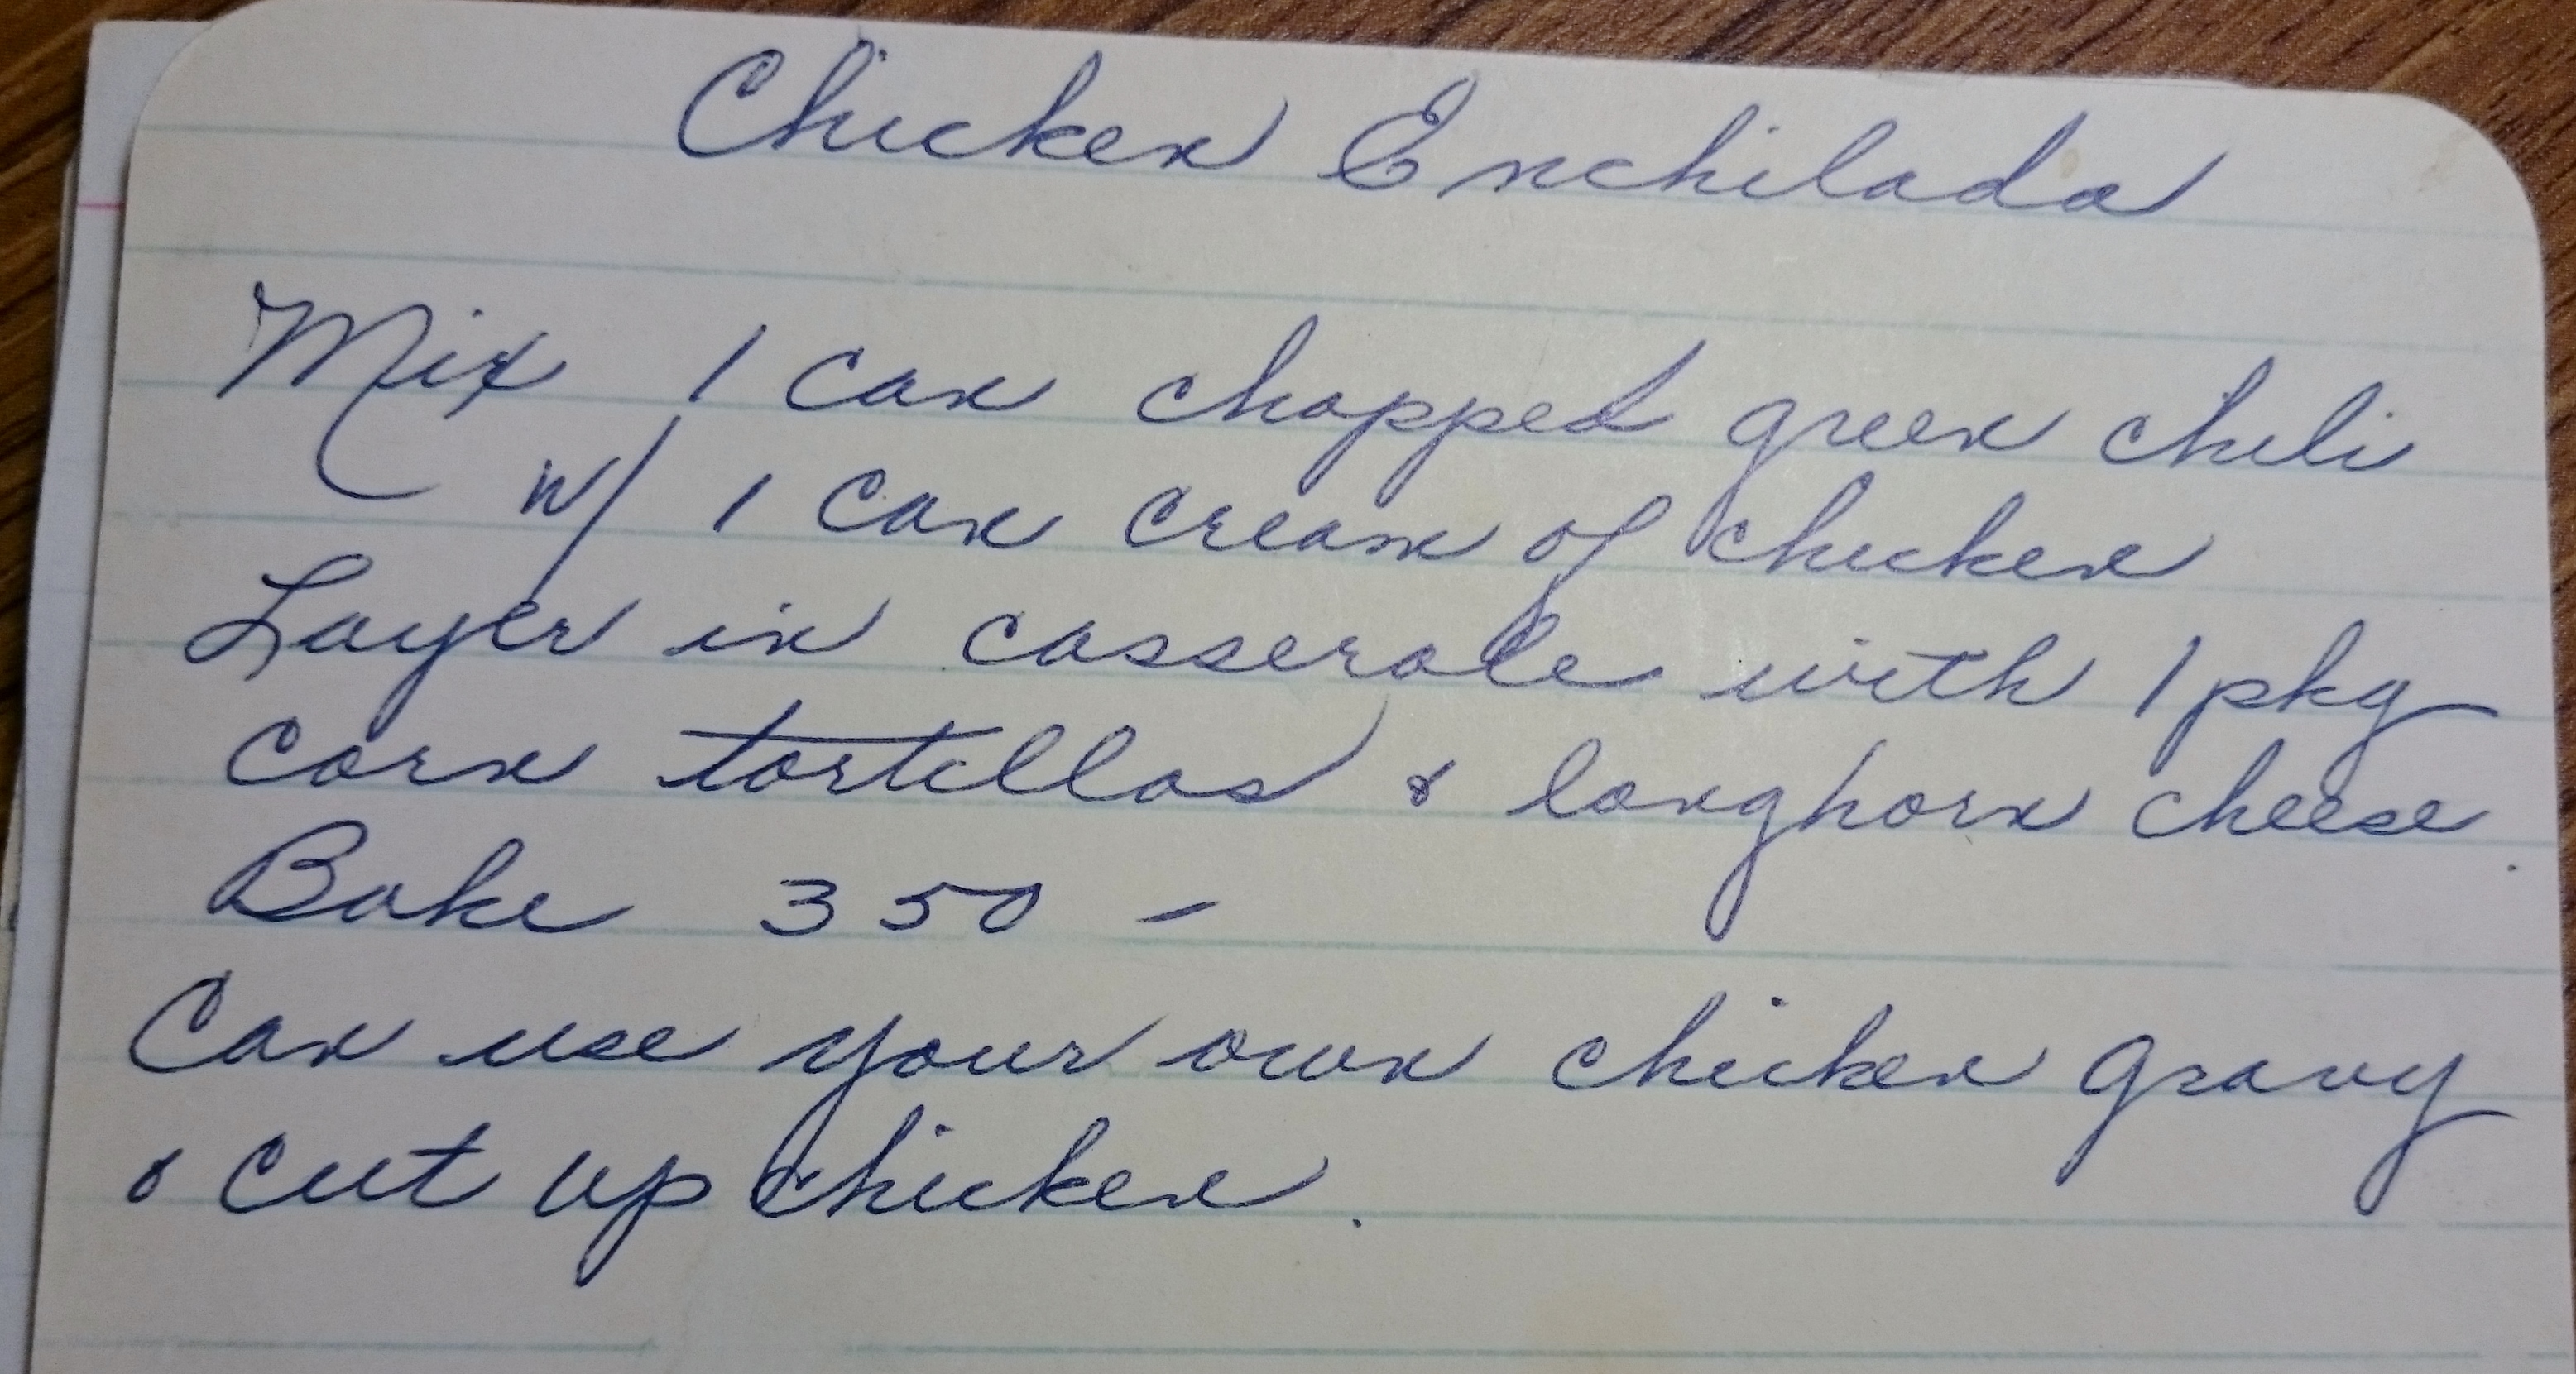 Chicken Enchilada
Mix 1 can chopped green chili
w/ 1 can cream of chicken
Layer in casserole with 1 pkg
corn tortillas & longhorn cheese
Bake 350 -
Can use your own chicken gravy
& cut up chicken.